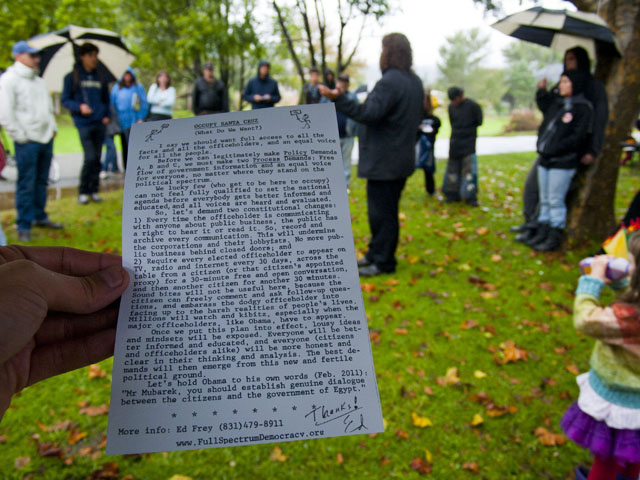 OCCUPY SANTA CRUZ
(What Do We Want?)
I say we should want full access to all the
facts and all the officeholders, and an equal voice
for all the people.
Before we can legitimately make Policy Demands
A, B and C, we must make two Process Demands: Free
flow of government information and an equal voice
for everyone, no matter where they stand on the
political spectrum.
We lucky few (who get to be here to occupy)
can not feel fully qualified to set the national
agenda before everybody gets better informed and
educated, and all voices are heard and evaluated.
So, let's demand two constitutional changes:
1) Every time the officeholder is communicating
with anyone about public business, the public has
a right to hear it or read it. So, record and
archive every communication. This will undermine
the corporations and their lobbyists. No more pub-
lic business behind closed doors; and
2) Require every elected officeholder to appear on
TV, radio and internet every 30 days, across the
table from a citizen (or that citizen's appointed
proxy) for a 30-minute free and open conversation,
and then another citizen for another 30 minutes.
Sound bites will not be useful here, because the
citizen can freely comment and ask follow-up ques-
tions, and embarass the dodgy officeholder into
facing up to the harsh realities of people's lives.
Millions will watch and kibitz, especially when the
major officeholders, like Obama, have to appear.
Once we put this plan into effect, lousy ideas
and mindsets will be exposed. Everyone will be bet-
ter informed and educated, and everyone (citizens
and officeholders alike) will be more honest and
clear in their thinking and analysis. The best de-
mands will then emerge from this new and fertile
political ground.
Let's hold Obama to his own words (Feb. 2011):
"Mr Mubarek, you should establish genuine dialogue
between the citizens and the government of Egypt."
* * * * * * * *
Thanks!
Ed
More info: Ed Frey (831)479-8911
www.FullSpectrumDemocracy.org